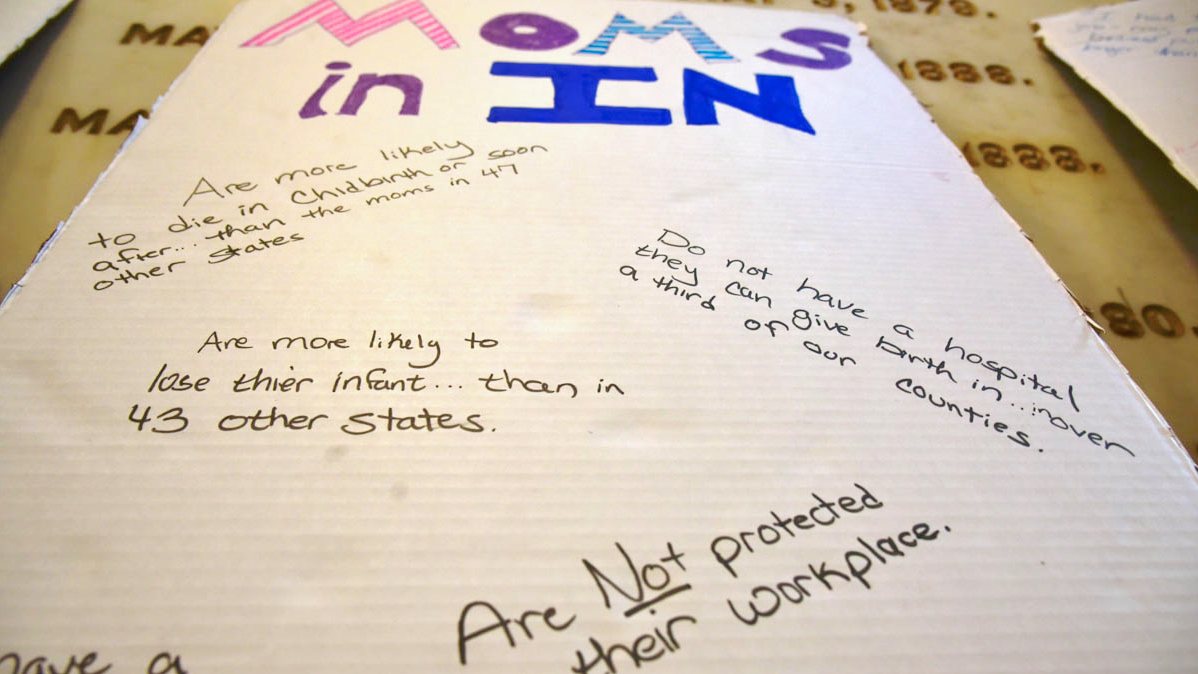 MOMS
in IN
Are more likely
to die in Chidbirth or soon
after... than the moms in 47
other states
Do not have a hospital
they can give birth in...in over
a third of our counties.
Are more likely to
lose thier infant... than in
43 other states.
Are Not protected
their workplace.
have a
MA
MA
1878.
1888.
1888.